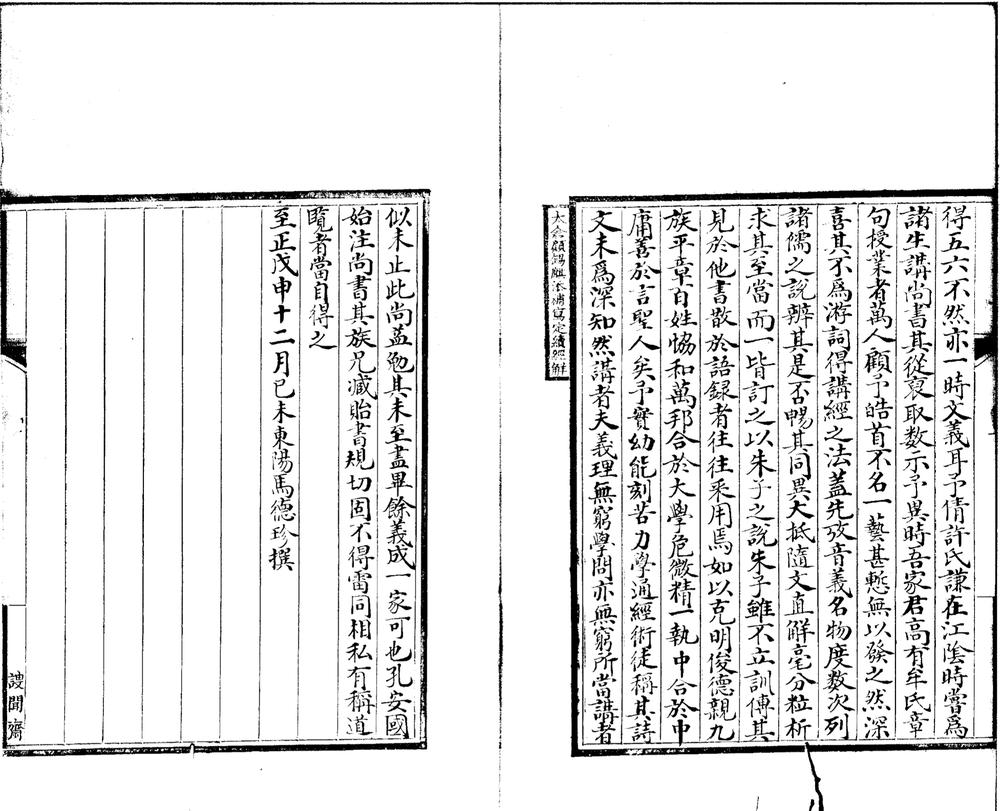 得五六不然亦一時文義耳予倩許氏謙在江陰時嘗爲
諸生講尚書其從裒取数示予異時吾家君高有牟氏章
句授業者萬人顧予皓首不名一藝甚慙無以發之然深
喜其不爲游詞得講經之法蓋先攷音義名物度數次列
諸儒之說辨其是否暢其同異大抵隨文直解毫分粒析
求其至當而一皆訂之以朱子之說朱子雖不立訓傳其
見於他書散於語録者往往采用焉如以克明俊德親九
族平章百姓恊和萬邦合於大學危微精一執中合於中
庸善於言聖人矣予實幼能刻苦力學通經術徒稱其詩
文未爲深知然講者夫義理無窮學問亦無窮所當講者
太倉顧錫麒添補寫定續經解
似未止此尚益勉其未至盡畢餘義成一家可也孔安國
始注尚書其族兄臧貽書規切固不得雷同相私有稱道
覧者當自得之
至正戊申十二月已未東陽馬德珍撰
謏聞齋